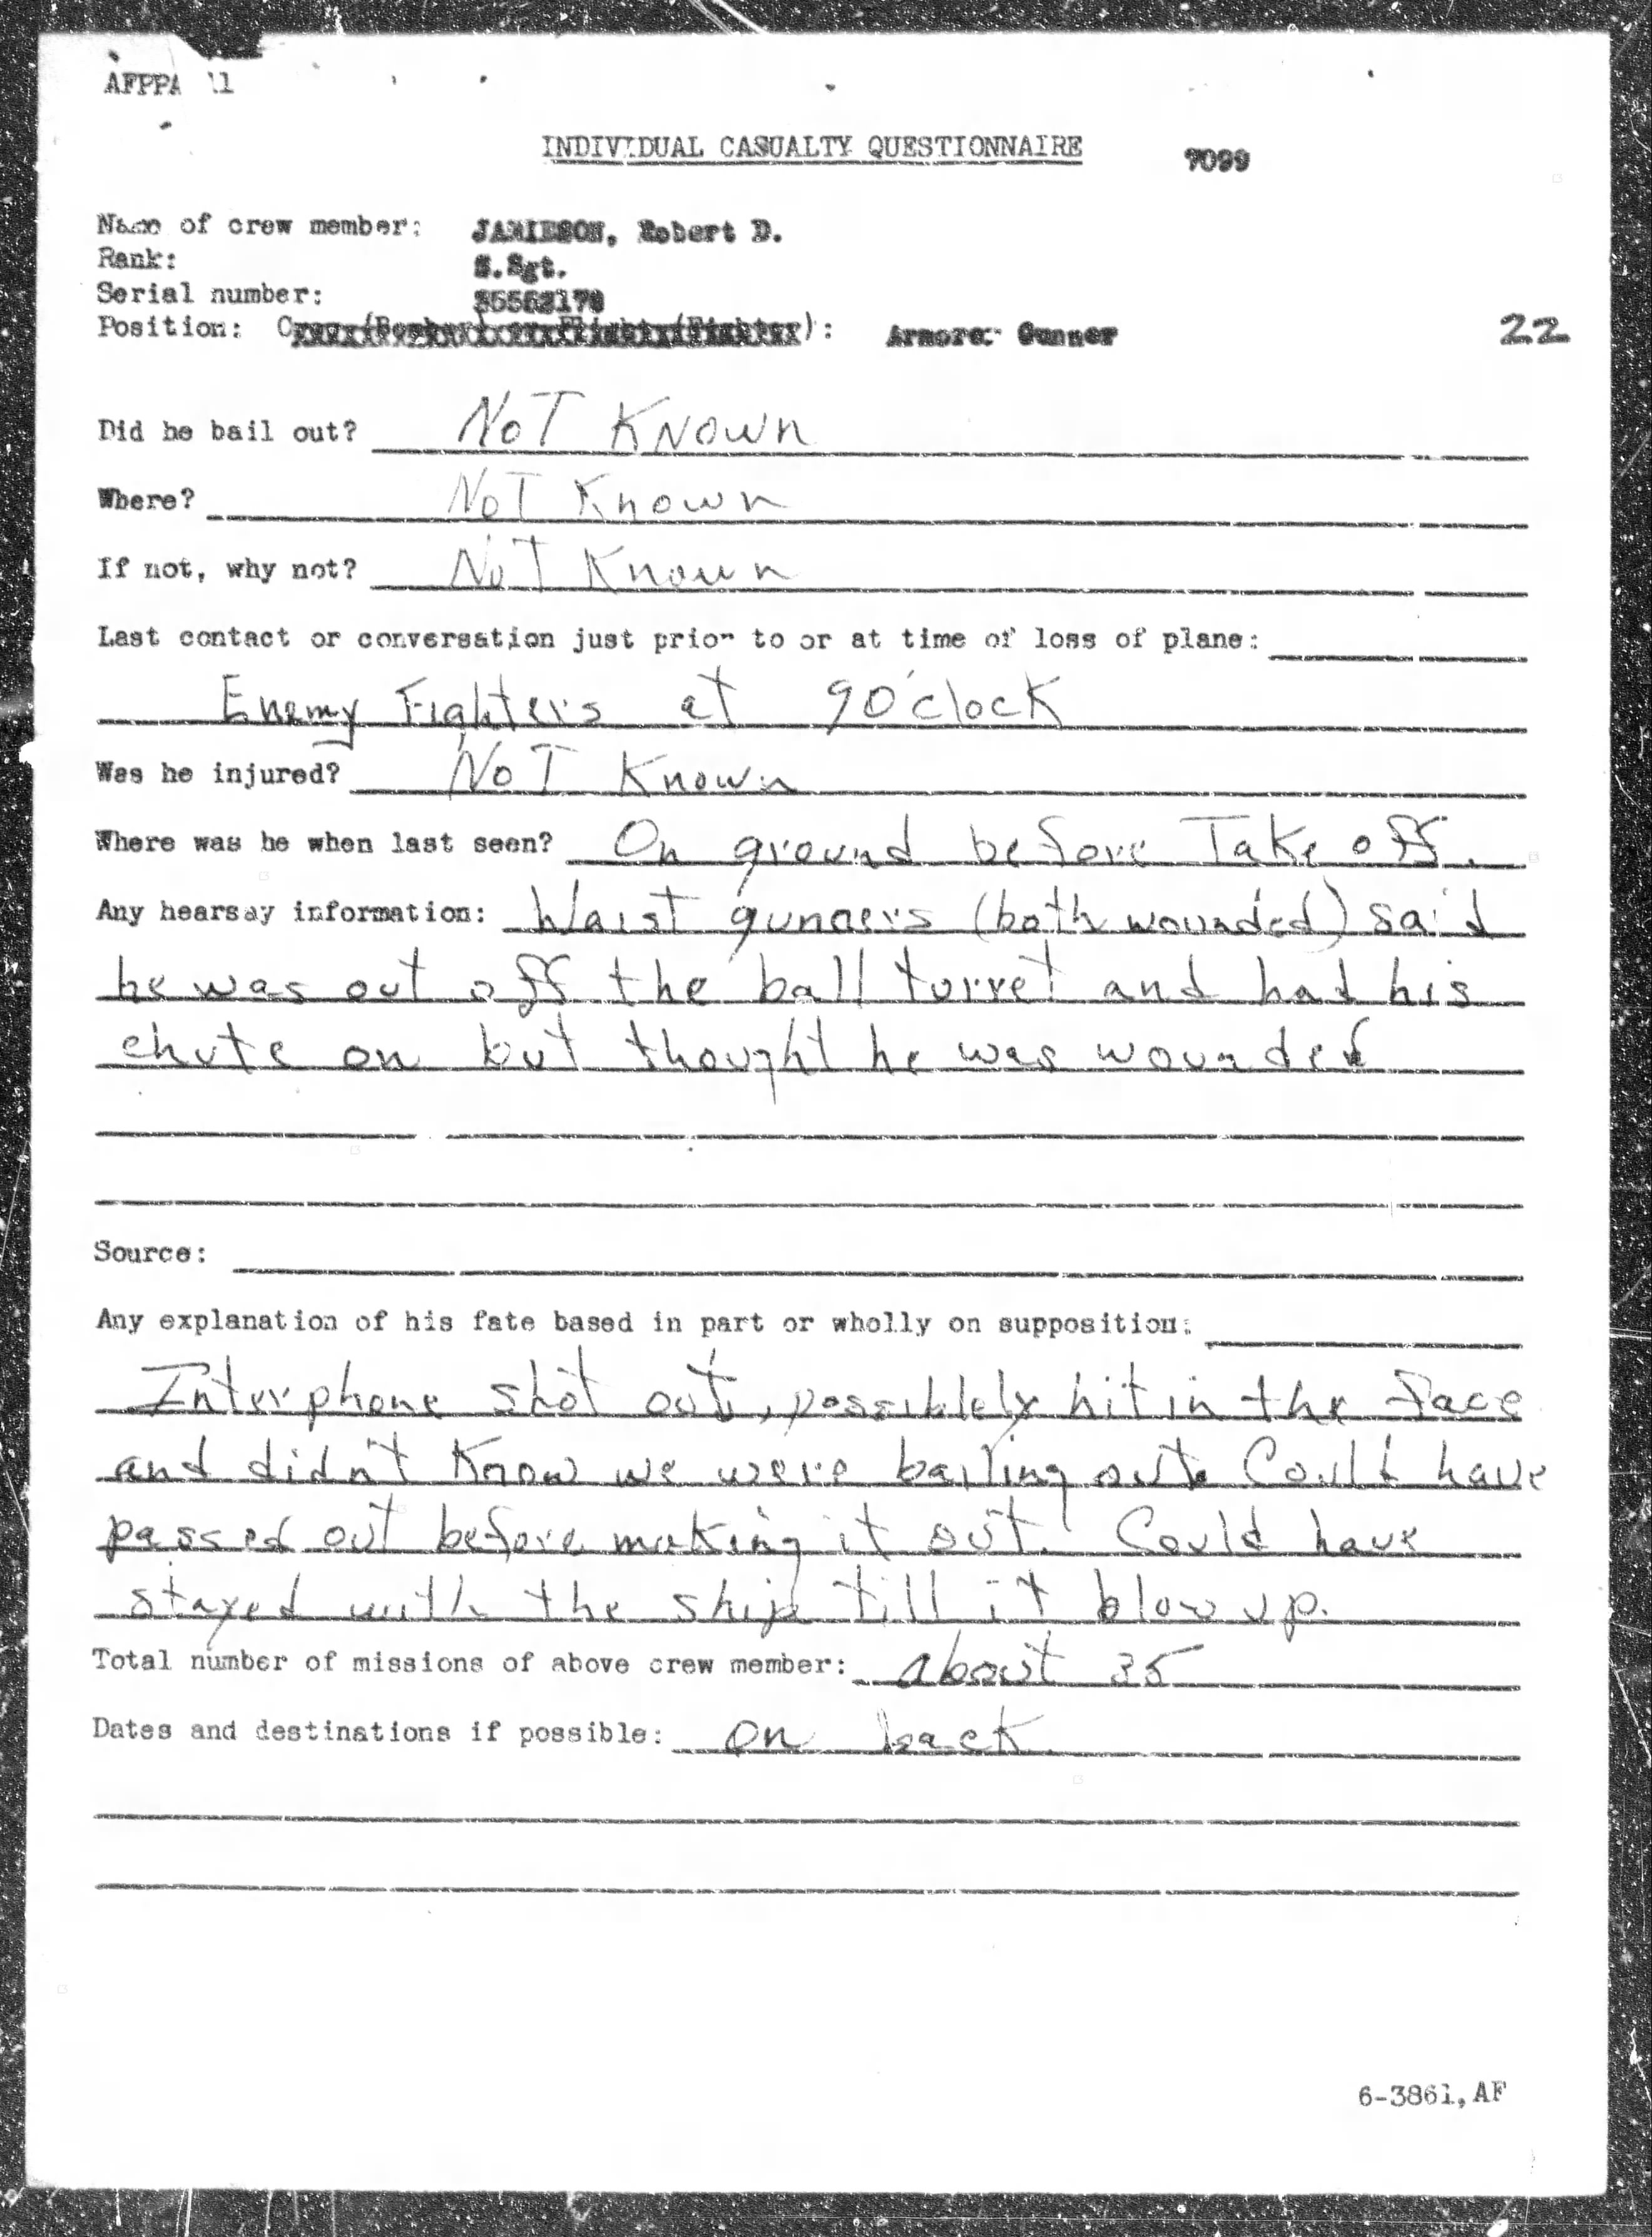 AFPPA 11
INDIVIDUAL CASUALTY QUESTIONNAIRE 7099
Name of crew member: JAMIESON, Robert D.
Rank: S.Sgt.
Serial number:
Position: Crew (Bomber) or Flight (Fighter): Armorer Gunner 22
Did he bail out? NoT KNOWN
Where? NoT Known
If not, why not? NoT Known
Last contact or conversation just prior to or at time of loss of plane:
Enemy Fighters at 9 O'clock
Was he injured? NoT Known
Where was he when last seen? On ground before Take off.
Any hearsay information: Waist gunners (both wounded) said
he was out off the ball turret and had his
chute on but thought he was wounded
Source:
Any explanation of his fate based in part or wholly on supposition:
Interphone shot out, possiblely hit in the face
and didn't Know we were bailing out. Could have
passed out before making it out. Could have
stayed with the ship till it blow up.
Total number of missions of above crew member: about 35
Dates and destinations if possible: on back
6-3861, AF